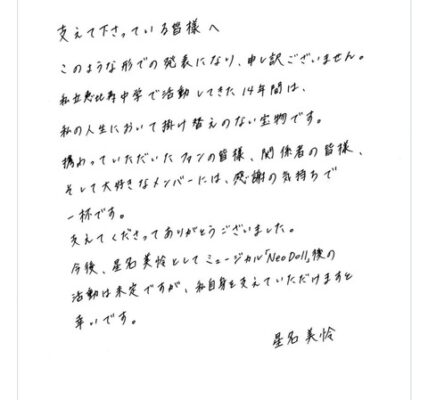 支えて下さっている皆様へ
このような形での発表になり、申し訳ございません。
私立恵比寿中学で活動してきた14年間は、
私の人生において掛け替えのない宝物です。
携わっていただいたファンの皆様、関係者の皆様、
そして大好きなメンバーには、感謝の気持ちで
一杯です。
支えてくださってありがとうございました。
今後、星名美怜としてミュージカル「Neo Doll」後の
活動は未定ですが、私自身を支えていただけますと
幸いです。
星名美怜